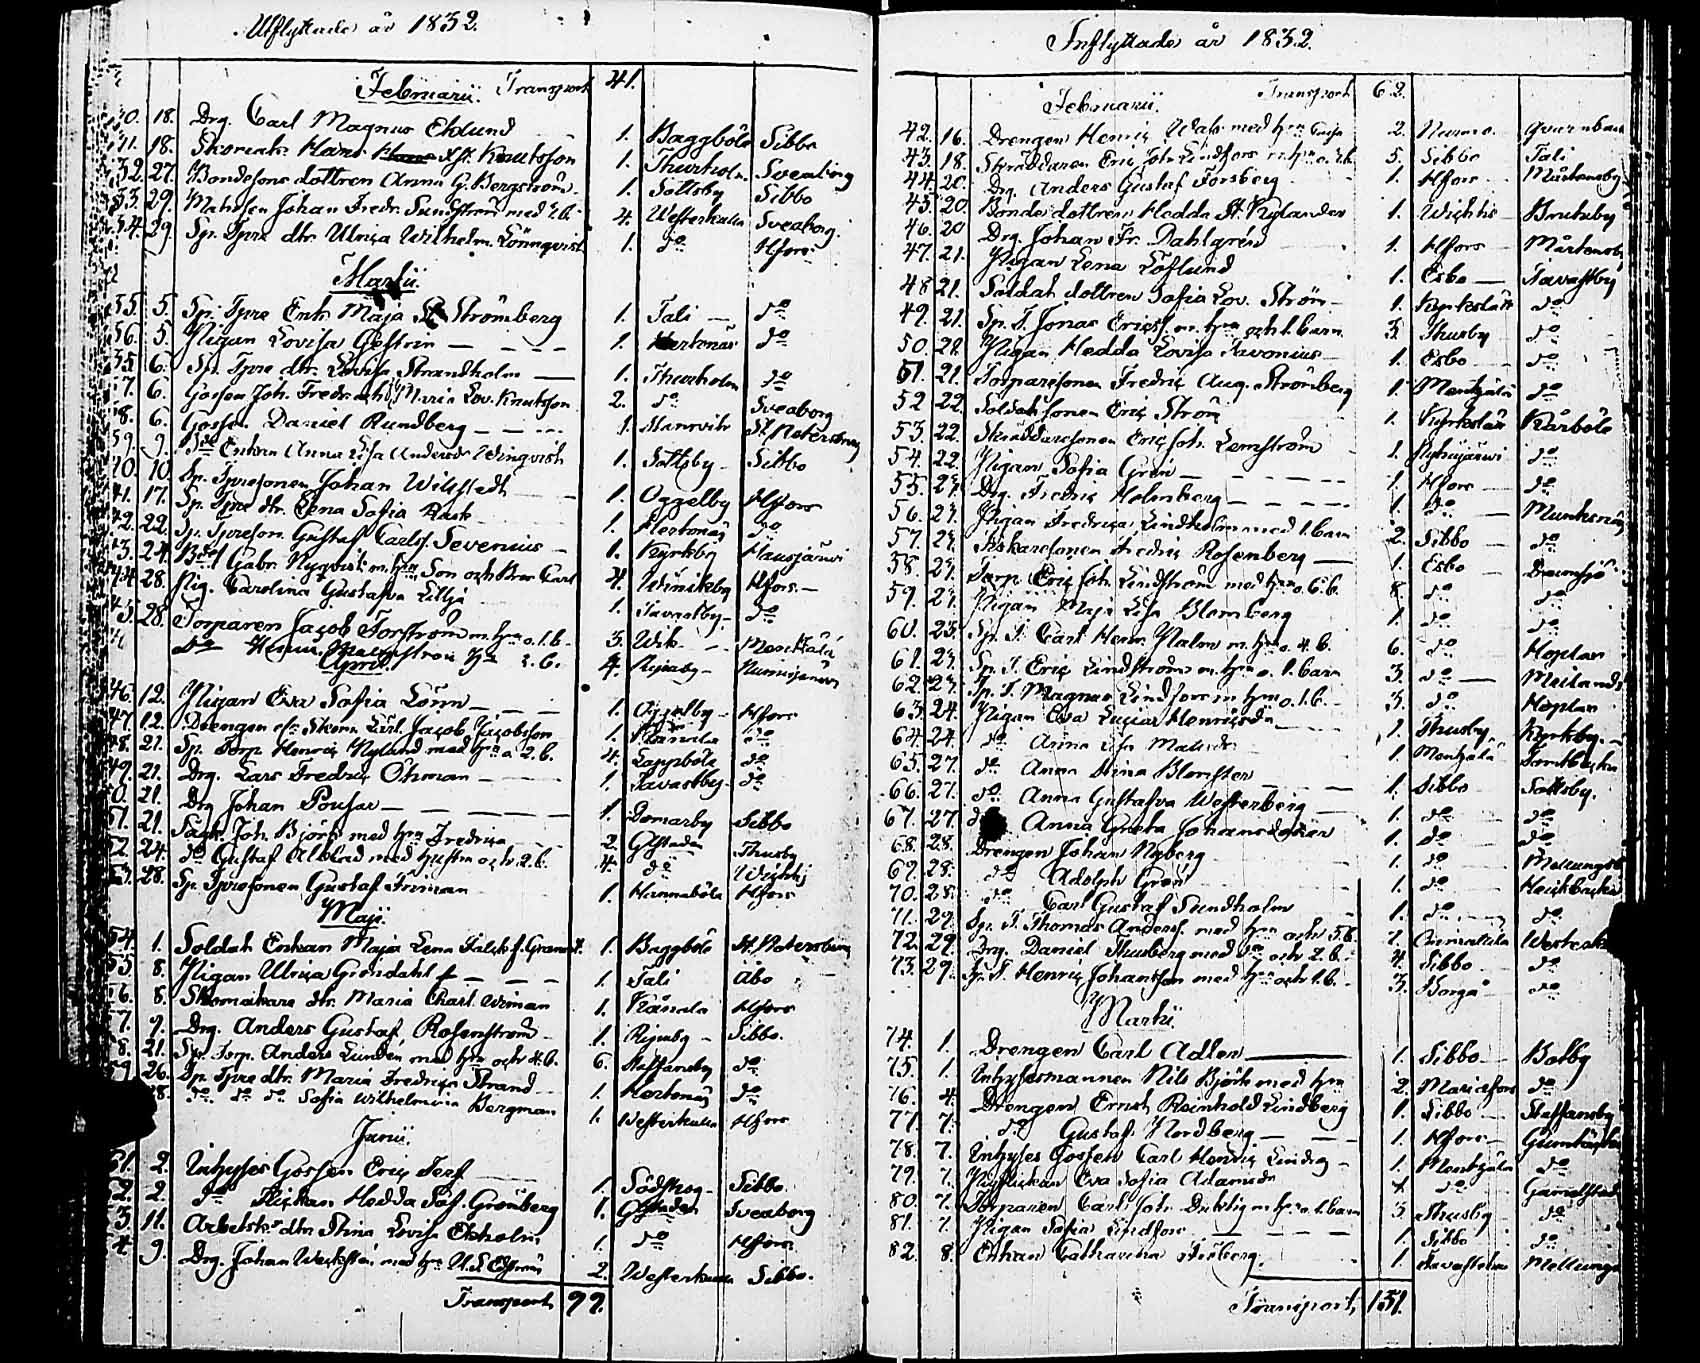 Utflyttade år 1832.
Februarii. Transport 41.
30. 18. Drg. Carl Magnus Eklund 1. Baggböle Sibbo
31. 18. Skomak. Knutsson 1. Thurholm Sveaborg
32. 27. Bondesons dottren Anna G. Bergström 1. Sottsby Sibbo
33. 29. Matrosen Johan Fredr. Sundström med 2 b. 4. Westerkulla Sveaborg.
34. 29. Sp. Tpre dtr. Ulrica Wilhelm. Lönnqvist 1. do Hfors
Martii.
35. 5. Sp. Tpre Enk. Maja Strömberg 1. Tali do
36. 5. Pigan Lovisa Gestrin 1. Hertonäs do
35. 6. Sp. Tpre dtr. Lovisa Strandholm 1. Thurholm do
37. 6. Gossen Joh. Fredr. och Maria Lov. Knutsson 2. do Sveaborg
38. 6. Gossen Daniel Rundberg 1. St. Petersburg
39. 9. Enkan Anna Lisa Andersdr Winqvist 1. Sottsby Sibbo
40. 10. Sp. Tpresonen Johan Willstedt 1. Oggelby Hfors
41. 17. Sp. Tpre dtr. Lena Sofia Rask 1. Hertonäs do
42. 22. Sp. Tpreson Gustaf Carlss. Sevenius 1. Kyrkby Hausjärvi
43. 24. Gabr. Nyqvist m. hu Son och Carl 4. Winikby Hfors
44. 28. Pig. Carolina Gustafva Lillja 1. Tavastby do
45. 28. Torparen Jacob Forström m. hu o. 1 b. 3. Wik Mentzälä
do Henric hu 2. b. 4. Nurmijärvi
April.
46. 12. Pigan Eva Sofia Lönn 1. Oggelby Hfors
47. 12. Drengen Jacob Jacobsson 1. Kånala do
48. 21. Sp. Torp. Henric Nylund med hu o. 2. b. 4. Lappböle do
49. 21. Drg. Lars Fredric Öhman 1. Tavastby do
50. 21. Drg Johan Pousar 1. Domarby Sibbo
51. 21. Joh. Björk med hu Fredrica 2. Glstaden Thusby
52. 24. do Gustaf Alblad med hustru och 2 b. 4. do Wichtis
53. 28. Sp. Tpresonen Gustaf Friman 1. Hannaböle Hfors
Maji.
54. 1. Soldat Enkan Maja Lena Falck f. 1. Baggböle St. Petersburg
55. 8. Pigan Ulrica Gröndahl 1. Tali Åbo
56. 8. Skomakare dtr. Maria Charl. Wiman 1. Kånala Hfors
57. 9. Drg. Anders Gustaf Rosenström 1. Sibbo.
58. 21. Sp. Torp. Anders Lindén med hu och 4. b. 6. Staffansby do
59. 26. Sp. Tpre dtr. Maria Fredrica Strand 1. Hertonäs do
8. do do do Sofia Wilhelmina Bergman 1. Westerkulla Hfors
Junii.
61. 2. Inhyses Gossen Eric Terf 1. Södskog Sibbo
62. 2. do Flickan Hedda Sof. Grönberg 1. Glstaden Sveaborg
63. 11. Arbetsk. dtr Stina Lovisa Ekholm 1. do Hfors
64. 9. Drg. Johan med hu 2. Westerkulla Sibbo.
Transport 99.
Inflyttade år 1832.
Februarii. Transport 62.
42. 16. Drengen Henric med hu 2. Nurmi
43. 18. Skräddaren Eric Joh. Lindfors m. hu o. 3 b. 5. Sibbo Tali
44. 20. Drg. Anders Gustaf Forsberg 1. Hfors Mårtensby
45. 20. Bonde dottren Hedda St. Nylander 1. Wichtis Brutuby
46. 20 Drg. Johan Fr. Dahlgrén 1. Hfors Mårtensby
47. 21. Pigan Lena Löflund 1. Esbo Tavastby
48 21. Soldat dottren Sofia Lov. Ström 1. Kyrkslätt do
49. 21. Sp. T. Jonas Ericss. m. hu och 1. barn 3. Thusby do
50. 21. Pigan Hedda Lovisa Favonius 1. Esbo do
51. 21. Torparesonen Fredric Aug. Strömberg 1. Mentzälä do
52 22. Soldatsonen Eric Ström 1. Kyrkslätt Kårböle
53. 22. Skräddaresonen Eric Joh. Lemström 1. do
54. 22. Pigan Sofia Grön 1. Hfors do
55. 27. Drg. Fredric Holmberg 1. do Munksnäs
56. 27. Pigan Fredrica Lindholm med 1. barn 2. Sibbo do
57. 27. Fiskaresonen Fredric Rosenberg 1. Esbo
58. 27. Torp. Eric Joh. Lindström med hu o. 6 b. 8. do do
59. 27. Pigan Maja Lisa Blomberg 1. do do
60. 23. Sp. T. Carl Henr. Malm m. hu o. 4. b. 6. do Hoplax
61. 27. Sp. T. Eric Lindström m. hu o. 1. barn 3. do Meilands
62. 27. Sp. T. Magnus Lindfors m. hu o. 1. b. 3. do Hoplax
63. 24. Pigan Eva Lucia Henricsdr 1. Thusby Kyrkby.
64. 24. do Anna Lisa Matsdr 1. Mentzälä Tomtbacka
65. 27. do Anna Stina Blomster 1. Sibbo Sottsby.
66. 27. do Anna Gustafva Westerberg 1. do do
67. 27. Anna Greta Johansdotter 1. do do
68. 28. Drengen Johan Nyberg 1. do Mellungsby
69. 28. do Adolph Grön 1. do Heickbacka
70. 28. do Carl Gustaf Sundholm 1. do do
71. 29. Sp. T. Thomas Anderss. med hu och 5 b. 7. Westerkulla
72. 29. Drg. Daniel Thusberg med hu och 2. b. 4. Sibbo do
73. 29. Sp. T. Henric Johansson med hu och 1. b. 3. Borgå do
Martii.
74. 1. Drengen Carl Adler 1. Sibbo Botby
75. 1. Inhysesmannen Nils Björk med hu 2. Mariefors do
76. 4. Drengen Ernst Reinhold Lindberg 1. Sibbo Staffansby
77. 7. do Gustaf Nordberg 1. Hfors Gumtäckt
78. 7. Inhyses Gossen Carl Henric Lindrg 1. Mentzälä do
79. 7. Pigflickan Eva Sofia Adamsdr 1. do Gamelstad
80. 7. Torparen Carl Joh. m. hu o. 1. barn 3. Thusby do
81. 7. Pigan Sofia Lindfors 1. Sibbo do
82. 8. Enkan Catharina Friberg. 1. Tavastehus Mellungs
Transport, 151.